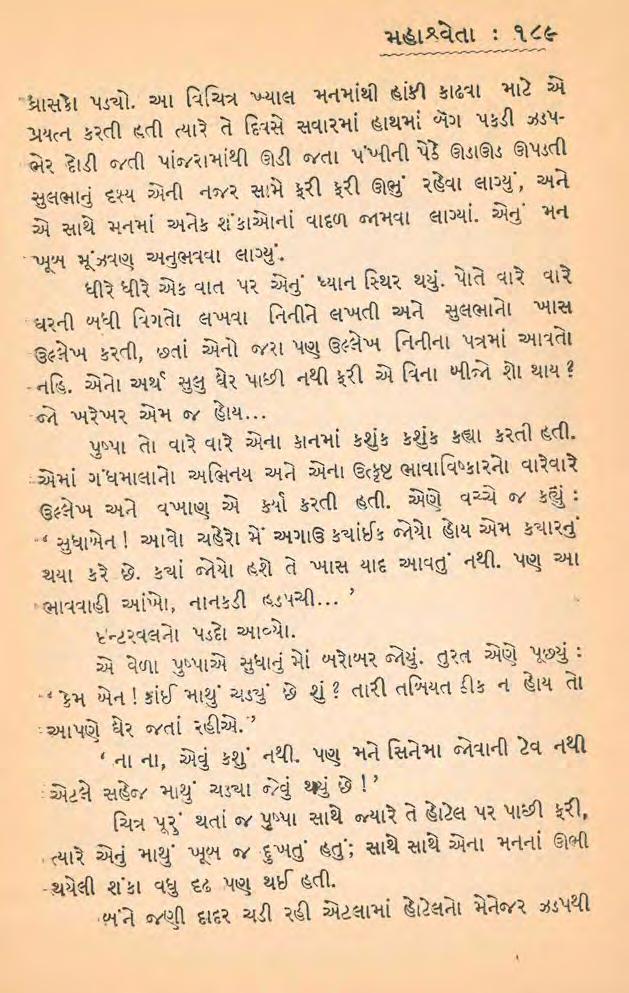 મહાશ્વેતા : ૧૮૯
ધ્રાસકો પડ્યો. આ વિચિત્ર ખ્યાલ મનમાંથી હાંકી કાઢવા માટે એ
પ્રયત્ન કરતી હતી ત્યારે તે દિવસે સવારમાં હાથમાં બૅગ પકડી ઝડપ-
ભેર દોડી જતી પાંજરામાંથી ઊડી જતા પંખીની પેઠે ઊડાઊડ ઊપડતી
સુલભાનું દૃશ્ય એની નજર સામે ફરી ફરી ઊભું રહેવા લાગ્યું, અને
એ સાથે મનમાં અનેક શંકાઓનાં વાદળ જામવા લાગ્યાં. એનું મન
ખૂબ મૂંઝવણ અનુભવવા લાગ્યું.
ધીરે ધીરે એક વાત પર એનું ધ્યાન સ્થિર થયું. પોતે વારે વારે
ઘરની બધી વિગતો લખવા નિતીને લખતી અને સુલભાનો ખાસ
ઉલ્લેખ કરતી, છતાં એનો જરા પણ ઉલ્લેખ નિતીના પત્રમાં આવતો
નહિ. એનો અર્થ સુલુ ઘેર પાછી નથી ફરી એ વિના બીજો શો થાય ?
જો ખરેખર એમ જ હોય...
પુષ્પા તો વારે વારે એના કાનમાં કશુંક કશુંક કહ્યા કરતી હતી.
એમાં ગંધમાલાનો અભિનય અને એના ઉત્કૃષ્ટ ભાવાવિષ્કારનો વારેવારે
ઉલ્લેખ અને વખાણ એ કર્યા કરતી હતી. એણે વચ્ચે જ કહ્યું :
‘ સુધાબેન ! આવો ચહેરો મેં અગાઉ કયાંઈક જોયો હોય એમ કયારનું
થયા કરે છે. કયાં જોયો હશે તે ખાસ યાદ આવતું નથી. પણ આ
ભાવવાહી આંખો, નાનકડી હડપચી... ’
ઇન્ટરવલનો પડદો આવ્યો.
એ વેળા પુષ્પાએ સુધાનું મોં બરોબર જોયું. તુરત એણે પૂછ્યું :
‘ કેમ બેન ! કાંઈ માથું ચડ્યું છે શું ? તારી તબિયત ઠીક ન હોય તો
આપણે ઘેર જતાં રહીએ.’
‘ ના ના, એવું કશું નથી. પણ મને સિનેમા જોવાની ટેવ નથી
એટલે સહેજ માથું ચડ્યા જેવું થયું છે ! ’
ચિત્ર પૂરું થતાં જ પુષ્પા સાથે જ્યારે તે હોટેલ પર પાછી ફરી,
ત્યારે એનું માથું ખૂબ જ દુખતું હતું; સાથે સાથે એના મનનાં ઊભી
થયેલી શંકા વધુ દૃઢ પણ થઈ હતી.
બંને જણી દાદર ચડી રહી એટલામાં હોટેલનો મેનેજર ઝડપથી